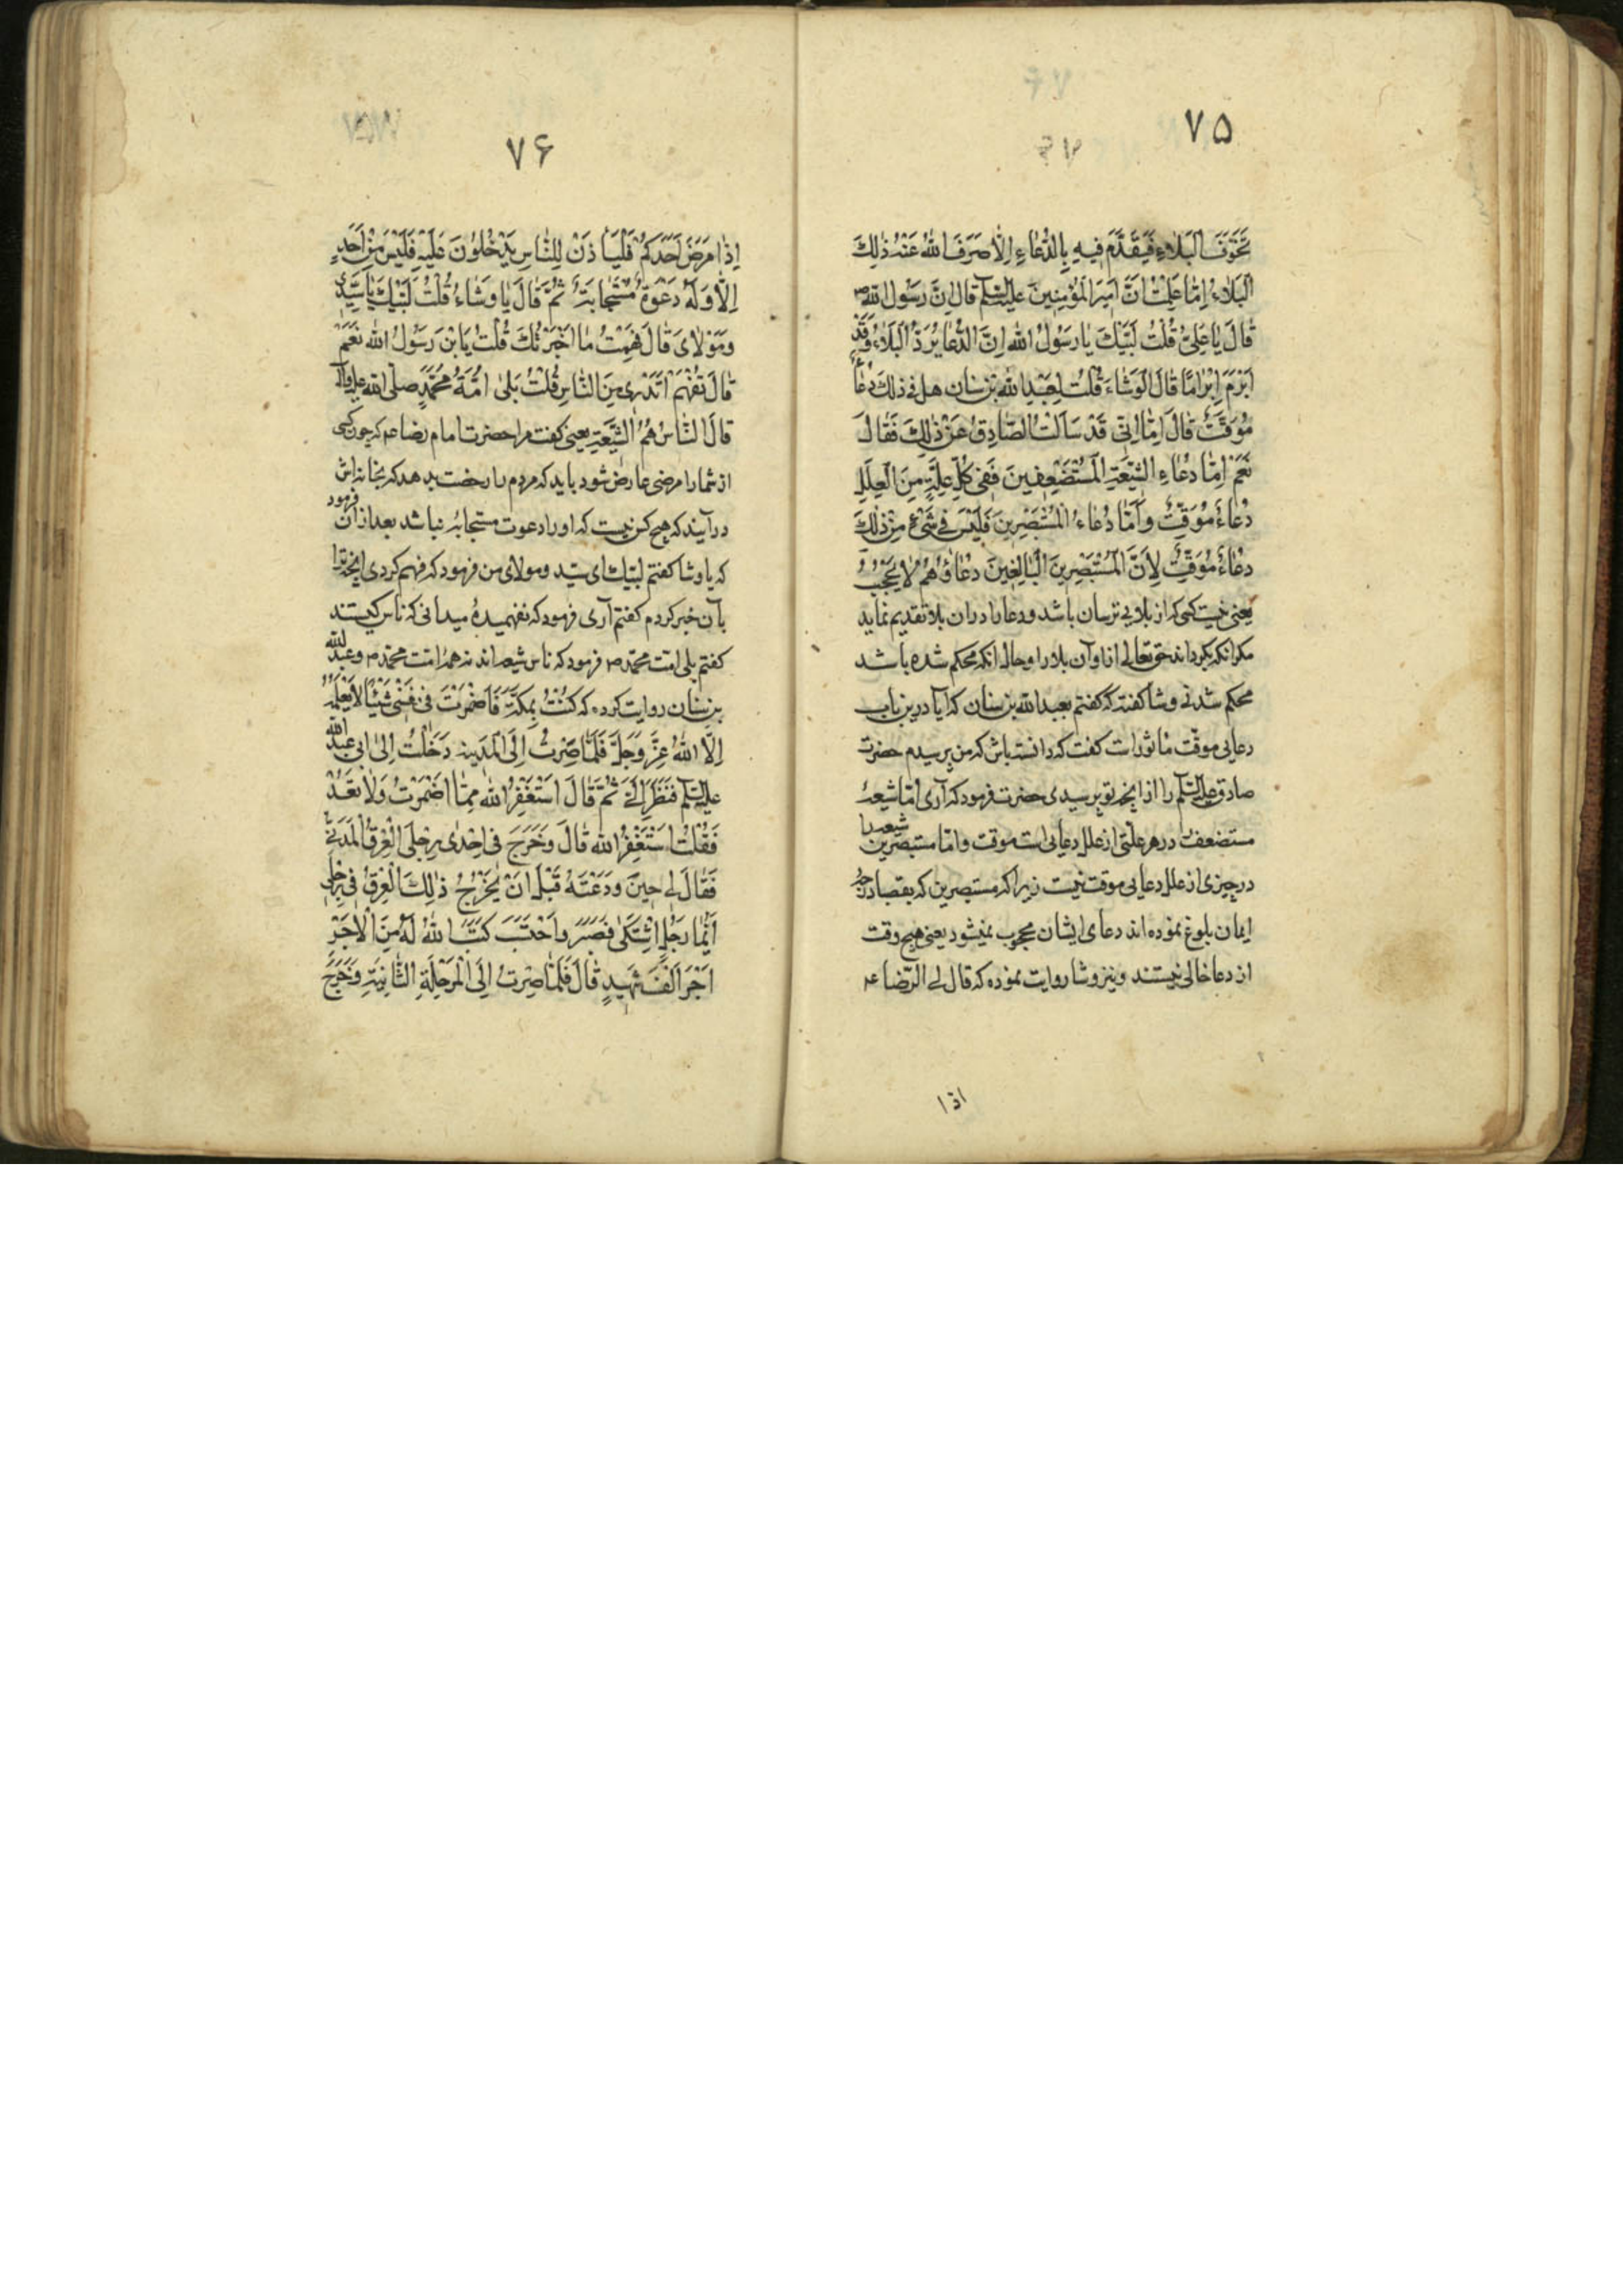 ۷۵
تَخَوَّفَ البَلاءِ فَيَقَدَّم فِيهِ بِالدُّعاءِ اِلّا صَرَفَ اللهُ عَنهُ ذٰلِكَ
البَلاءُ اِمّا عَلِمتَ انَّ اَمِيرَ المُؤمِنِينَ عليه السّلم قالَ اِنَّ رَسُولَ الله ص
قالَ يا عَلِيُّ قُلتُ لَبَّيكَ يا رَسُولُ الله اِنَّ الدُّعا يُرَدُّ البَلاءُ وَقَد
اَبرَمَ اِبرامًا قالَ الوَشاءُ قُلتُ لِعَبدِ اللهِ بن سنان هل فى ذلك دُعاءٌ
مُوَقَّتٌ قالَ اِمّا اِنّى قَد سَاَلتُ الصّادِقُ عَن ذٰلِكَ فَقالَ
نَعَم اِمّا دُعاءِ الشِّيعَةِ المُستَضعِفِينَ فَفى كُلِّ عِلَّةٍ مِنَ العِلَلِ
دُعاءٌ مُوَقَّتٌ وَاَمّا دُعاءُ المُستَبصِرِينَ فَلَيسَ فى شَىءٍ مِن ذٰلِكَ
دعاءٌ مُوَقَّتٌ لِاَنَّ المُستَبصِرِينَ البالِغِينَ دعاؤُهُم لا يُحجَبُ
يعنى نيست كسى كه از بلايى ترسان باشد و دعا را در ان بلا تقديم نمايد
مكر انكه بكرداند حق تعالى از او آن بلا را و حال انكه محكم شده باشد
محكم شدنى وشا كفته كه كفتم بعبد الله بن سنان كه آيا درين باب
دعايى موقت ماثور است كفت كه دانسته باش كه من پرسيدم حضرت
صادق عليه السّلم را از انچه تو پرسيدى حضرت فرمود كه آرى امّا شيعهٔ
مستضعف در هر علّتى از علل دعايى است موقت و امّا مستبصرين شيعه را
در چيزى از علل دعايى موقت نيست زيرا كه مستبصرين كه بقصا درجهٔ
ايمان بلوغ نموده اند دعاى ايشان محجوب نميشود يعنى هيچ وقت
از دعا خالى نيستند و نيز وشا روايت نموده كه قال لى الرّضا ع
اذا
۷۶
اِذا مَرَضَ اَحَدَكُم فَليَاذَن لِلنّاسِ يَدخُلُونَ عَلَيهِ فَلَيسَ مِن اَحَدٍ
اِلّا وَلَهُ دَعوَةٌ مُستَجابَةٌ ثُمَّ قالَ يا وَشاءُ قُلتُ لَبَّيكَ يا سَيِّدى
وَمَولاىَ قالَ فَهِمتُ ما اَخبَرتُكَ قُلتُ يَابنَ رَسُولُ الله نَعَم
قالَ تَفَهَّم اَتَدرى مِنَ النّاسِ قُلتُ بَلى اُمَّةُ مُحَمَّدٍ صلّى الله عليه وآله
قالَ النّاسُ هُم الشِّيعَةِ يعنى كفت مرا حضرت امام رضا ع كه چون كسى
از شما را مرضى عارض شود بايد كه مردم را رخصت بدهد كه بخانه اش
در آيند كه هيچ كس نيست كه او را دعوت مستجابه نباشد بعد از ان فرمود
كه يا وشا كفتم لبّيك اى سيّد و مولاى من فرمود كه فهم كردى انچه ترا
بآن خبر كردم كفتم آرى فرمود كه نفهميدهٔ ميدانى كه ناس كيستند
كفتم بلى امّت محمّد ص فرمود كه ناس شيعه اند نه همهٔ امّت محمّد ص و عبد الله
بن سنان روايت كرده كه كُنتُ بِمَكَّةَ فَاَضمَرتُ فى نَفسى شَيئًا لا يَعلَمُهُ
اِلَّا اللهُ عزّ وَجَلَّ فَلَمّا صِرتُ اِلَى المَدِينه دَخَلتُ اِلى ابى عبد الله
عليه السّلم فَنَظَرَ اِلَىَّ ثُمَّ قالَ استَغفِرُ الله مِمّا اَضمَرتُ وَلا تَعُد
فَقُلتُ اَستَغفِرُ الله قالَ وَخَرَجَ فى اِحدى رِجلَى العِرقُ المَدَنىّ
فَقالَ لى حِينَ وَدَعتَهُ قَبلَ اَن يَخرُجُ ذٰلِكَ العِرقُ فى رِجلى
اَيُّما رَجُلٍ اشتَكى فَصَبَرَ وَاحتَسَبَ كَتَبَ اللهُ لَهُ مِنَ الاَجرِ
اَجرَ اَلفَ شَهِيدٍ قالَ فَلَمّا صِرتُ اِلَى المَرحَلَةِ الثّانِيَةِ وَخَرَجَ